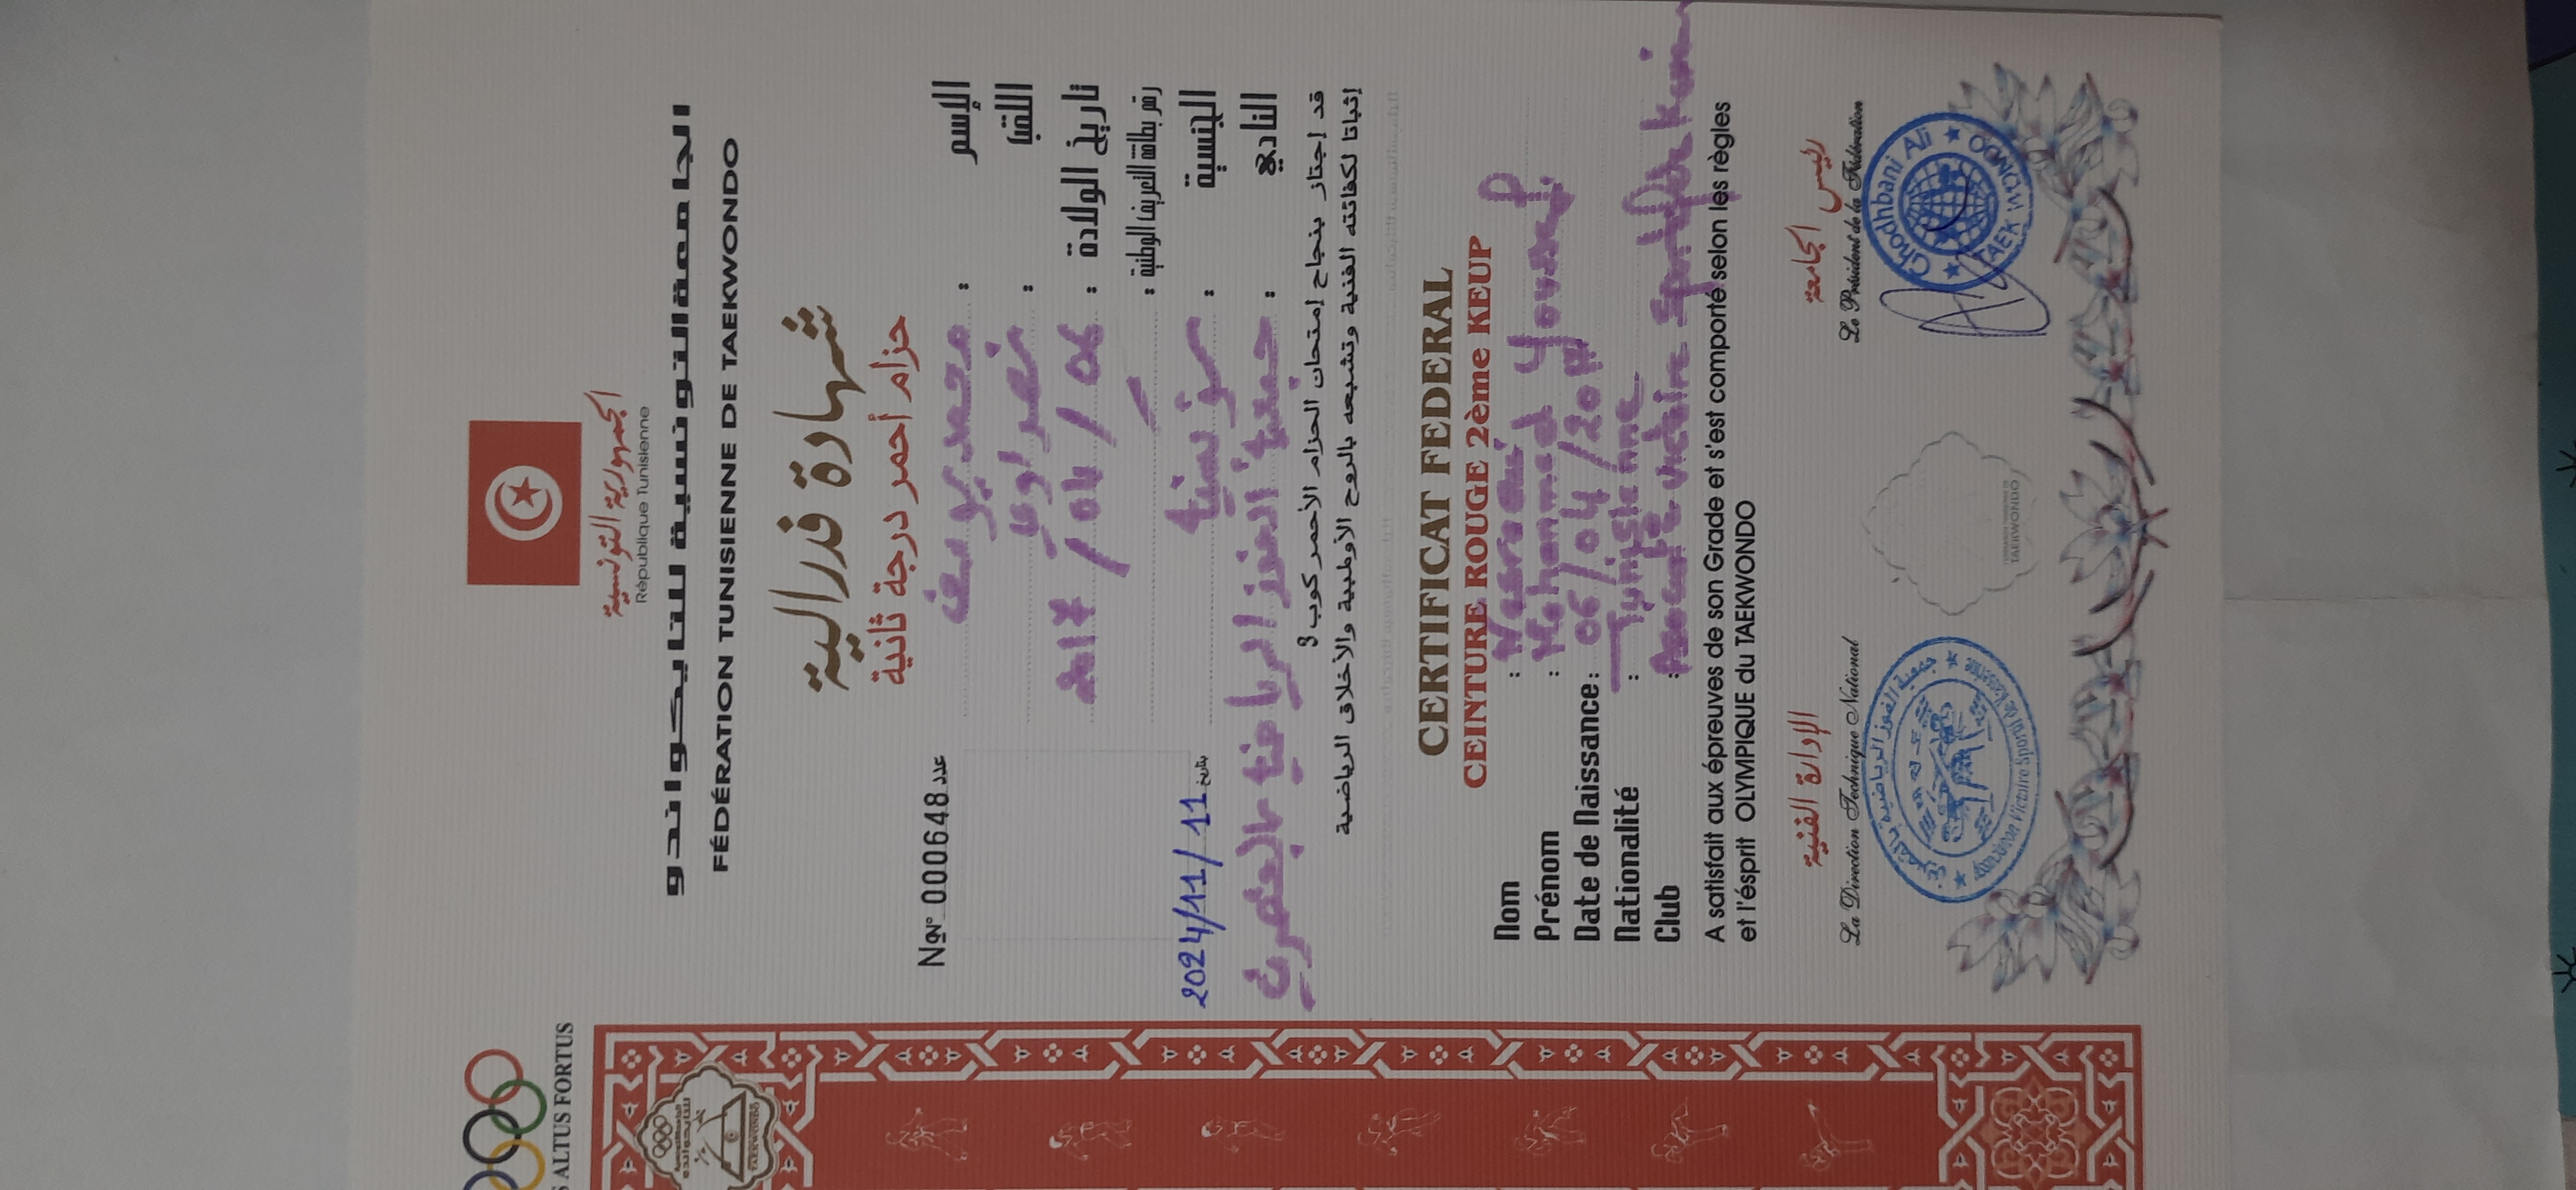 الجمهورية التونسية
République Tunisienne
الجامعة التونسية للتايكواندو
FÉDÉRATION TUNISIENNE DE TAEKWONDO
ALTUS FORTUS
شهادة فدرالية
حزام أحمر درجة ثانية
عدد 000648 Nº
الإسم : محمد يوسف
اللقب : نصراوي
تاريخ الولادة : 06 / 04 / 2017
رقم بطاقة التعريف الوطنية :
الجنسية : تونسية
بتاريخ 2024/11/11
النادي : جمعية الفوز الرياضية بالقصرين
قد إجتاز بنجاح إمتحان الحزام الأحمر كوب و
إثباتا لكفائته الفنية وتشبعه بالروح الأولمبية والأخلاق الرياضية
CERTIFICAT FEDERAL
CEINTURE ROUGE 2ème KEUP
Nom : Nasraoui
Prénom : Mohammed Youssef
Date de Naissance : 06/04/2017
Nationalité : Tunisienne
Club : victoire
A satisfait aux épreuves de son Grade et s'est comporté selon les règles
et l'ésprit OLYMPIQUE du TAEKWONDO
الإدارة الفنية
La Direction Technique National
رئيس الجامعة
Le Président de la Fédération
جمعية الفوز الرياضية بالقصرين
Ghodhbani Ali
TAEK WONDO
TAEKWONDO